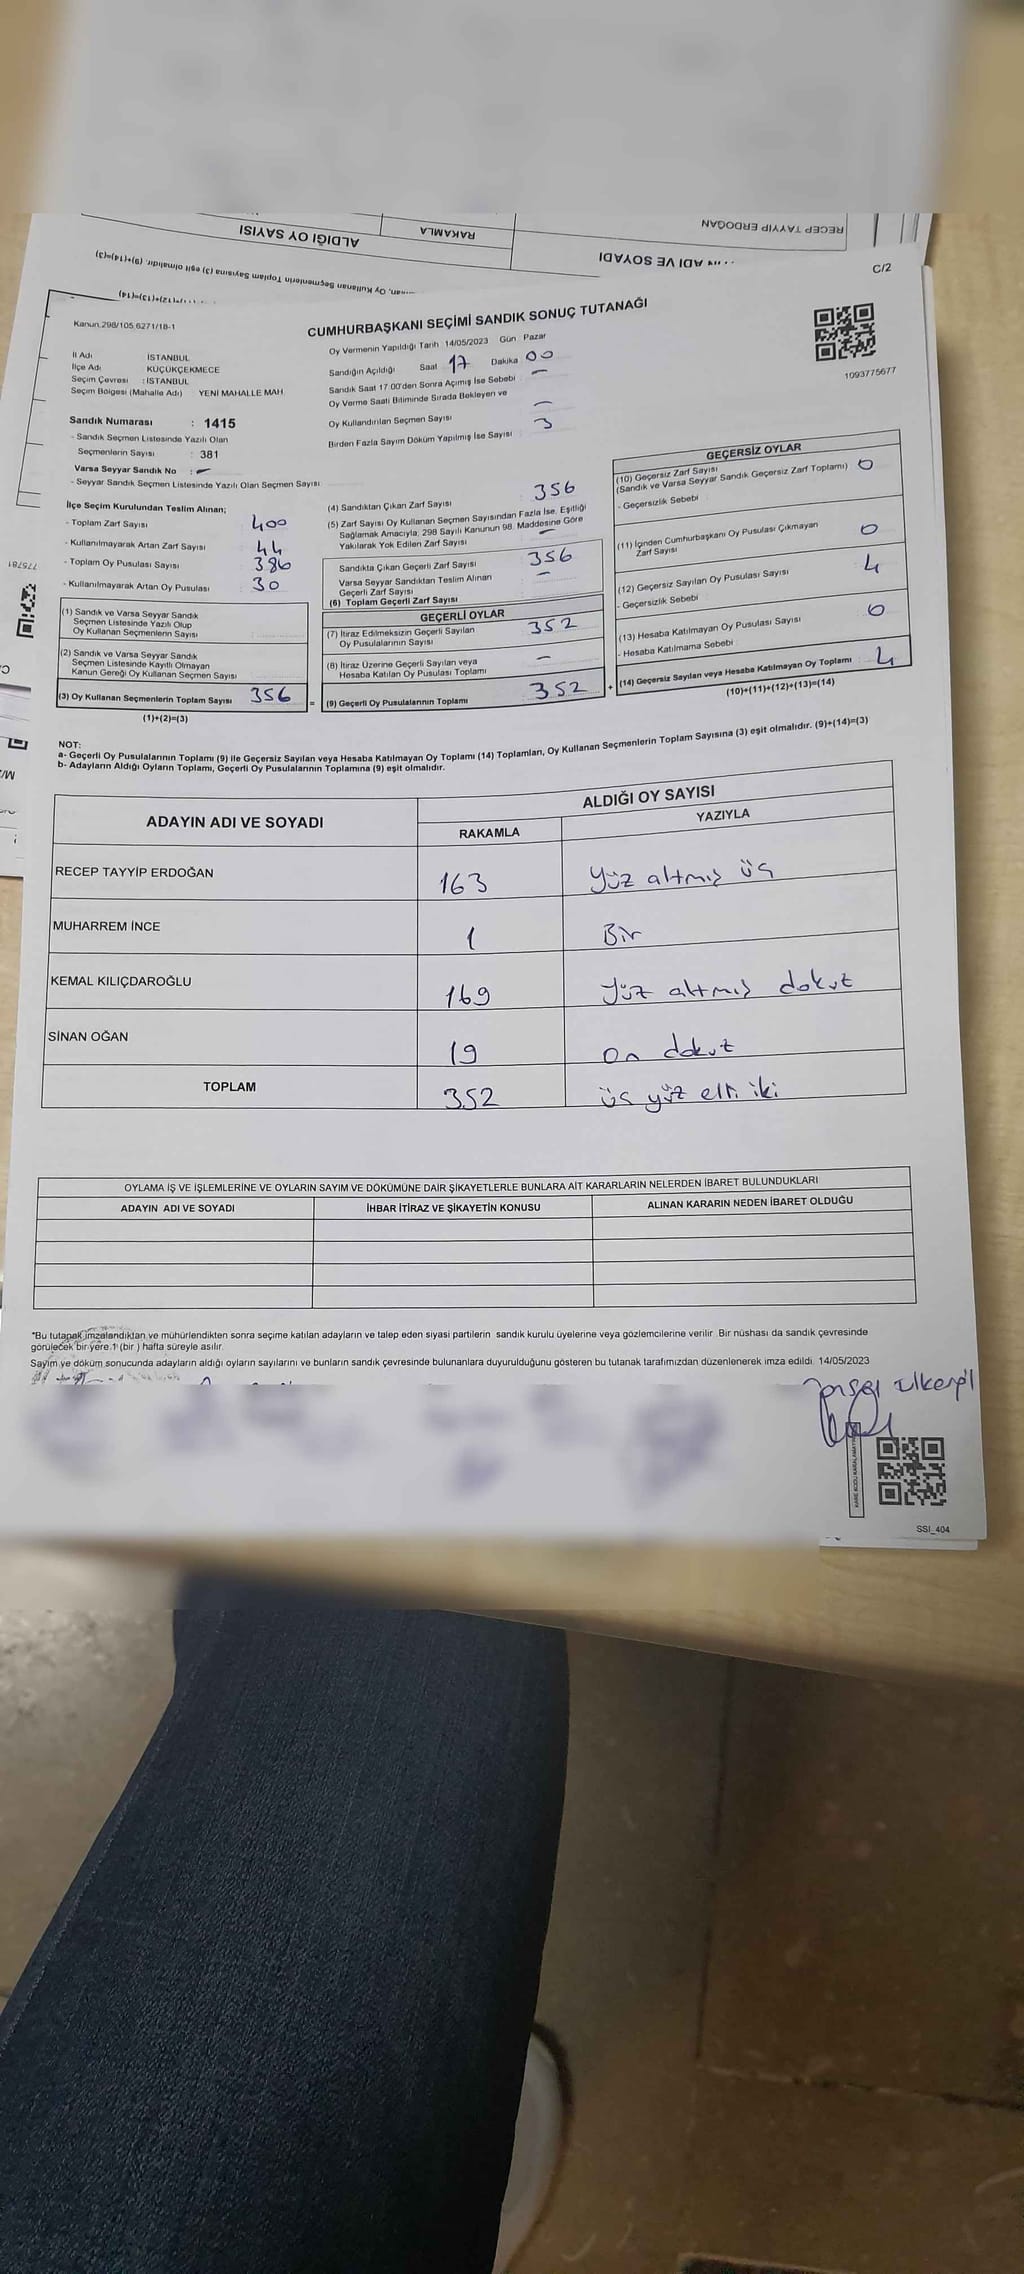 RECEP TAYYİP ERDOĞAN
RAKAMLA
ALDIĞI OY SAYISI
ADI VE SOYADI
C/2
Kanun,298/105,6271/18-1
CUMHURBAŞKANI SEÇİMİ SANDIK SONUÇ TUTANAĞI
1093775677
İl Adı İSTANBUL
İlçe Adı KÜÇÜKÇEKMECE
Seçim Çevresi : İSTANBUL
Seçim Bölgesi (Mahalle Adı) YENİ MAHALLE MAH
Oy Vermenin Yapıldığı Tarih 14/05/2023 Gün Pazar
Sandığın Açıldığı Saat 17 Dakika 00
Sandık Saat 17.00'den Sonra Açımış İse Sebebi —
Oy Verme Saati Bitiminde Sırada Bekleyen ve
Oy Kullandırılan Seçmen Sayısı —
Birden Fazla Sayım Döküm Yapılmış İse Sayısı : 3
Sandık Numarası : 1415
- Sandık Seçmen Listesinde Yazılı Olan
Seçmenlerin Sayısı : 381
Varsa Seyyar Sandık No : —
- Seyyar Sandık Seçmen Listesinde Yazılı Olan Seçmen Sayısı
İlçe Seçim Kurulundan Teslim Alınan;
- Toplam Zarf Sayısı 400
- Kullanılmayarak Artan Zarf Sayısı 44
- Toplam Oy Pusulası Sayısı 386
- Kullanılmayarak Artan Oy Pusulası 30
(1) Sandık ve Varsa Seyyar Sandık
Seçmen Listesinde Yazılı Olup
Oy Kullanan Seçmenlerin Sayısı
(2) Sandık ve Varsa Seyyar Sandık
Seçmen Listesinde Kayıtlı Olmayan
Kanun Gereği Oy Kullanan Seçmen Sayısı
(3) Oy Kullanan Seçmenlerin Toplam Sayısı 356
(1)+(2)=(3)
(4) Sandıktan Çıkan Zarf Sayısı 356
(5) Zarf Sayısı Oy Kullanan Seçmen Sayısından Fazla İse, Eşitliği
Sağlamak Amacıyla; 298 Sayılı Kanunun 98. Maddesine Göre
Yakılarak Yok Edilen Zarf Sayısı —
Sandıkta Çıkan Geçerli Zarf Sayısı 356
Varsa Seyyar Sandıktan Teslim Alınan
Geçerli Zarf Sayısı —
(6) Toplam Geçerli Zarf Sayısı
GEÇERLİ OYLAR
(7) İtiraz Edilmeksizin Geçerli Sayılan
Oy Pusulalarının Sayısı 352
(8) İtiraz Üzerine Geçerli Sayılan veya
Hesaba Katılan Oy Pusulası Toplamı —
= (9) Geçerli Oy Pusulalarının Toplamı 352 +
GEÇERSİZ OYLAR
(10) Geçersiz Zarf Sayısı
(Sandık ve Varsa Seyyar Sandık Geçersiz Zarf Toplamı) 0
- Geçersizlik Sebebi
(11) İçinden Cumhurbaşkanı Oy Pusulası Çıkmayan
Zarf Sayısı 0
(12) Geçersiz Sayılan Oy Pusulası Sayısı 4
- Geçersizlik Sebebi
(13) Hesaba Katılmayan Oy Pusulası Sayısı 0
- Hesaba Katılmama Sebebi
(14) Geçersiz Sayılan veya Hesaba Katılmayan Oy Toplamı : 4
(10)+(11)+(12)+(13)=(14)
NOT:
a- Geçerli Oy Pusulalarının Toplamı (9) ile Geçersiz Sayılan veya Hesaba Katılmayan Oy Toplamı (14) Toplamları, Oy Kullanan Seçmenlerin Toplam Sayısına (3) eşit olmalıdır. (9)+(14)=(3)
b- Adayların Aldığı Oyların Toplamı, Geçerli Oy Pusulalarının Toplamına (9) eşit olmalıdır.
ADAYIN ADI VE SOYADI ALDIĞI OY SAYISI
RAKAMLA YAZIYLA
RECEP TAYYİP ERDOĞAN 163 Yüz altmış üç
MUHARREM İNCE 1 Bir
KEMAL KILIÇDAROĞLU 169 Yüz altmış dokuz
SİNAN OĞAN 19 On dokuz
TOPLAM 352 üç yüz elli iki
OYLAMA İŞ VE İŞLEMLERİNE VE OYLARIN SAYIM VE DÖKÜMÜNE DAİR ŞİKAYETLERLE BUNLARA AİT KARARLARIN NELERDEN İBARET BULUNDUKLARI
ADAYIN ADI VE SOYADI İHBAR İTİRAZ VE ŞİKAYETİN KONUSU ALINAN KARARIN NEDEN İBARET OLDUĞU
*Bu tutanak imzalandıktan ve mühürlendikten sonra seçime katılan adayların ve talep eden siyasi partilerin sandık kurulu üyelerine veya gözlemcilerine verilir. Bir nüshası da sandık çevresinde
görülecek bir yere 1 (bir ) hafta süreyle asılır.
Sayım ve döküm sonucunda adayların aldığı oyların sayılarını ve bunların sandık çevresinde bulunanlara duyurulduğunu gösteren bu tutanak tarafımızdan düzenlenerek imza edildi. 14/05/2023
SSI_404